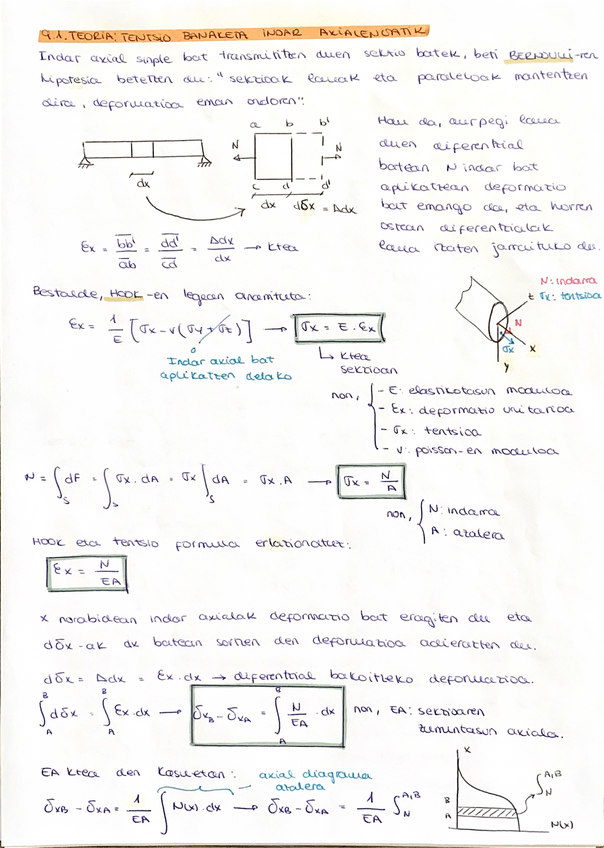 9.1. TEORIA: TENTSIO BANAKETA INDAR AXIALENGATIK
Indar axial simple bat transmititzen duen sektio batek, beti BERNOULLI-ren
hipotesia betetzen du: "sektioak lauak eta paraleloak mantentzen
dira, deformazioa eman ondoren":
Hau da, aurpegi laua
duen diferentzial
batean N indar bat
aplikatzean deformatio
bat emango da, eta horren
ostean diferentzialak
laua izaten jarraituko du.
a b b'
N N
c d d'
dx
dx dδx = Δdx
εx = bb'/ab = dd'/cd = Δdx/dx → Ktea
Bestalde, HOOK-en legean
εx = 1/E [σx - ν(σy + σz)] → σx = E · εx
0
Indar axial bat
aplikatzen delako
↳ Ktea
sektioan
N: indarra
σx: tentsioa
z
N
σx
x
y
non, - E: elastikotasun moduloa
- εx: deformatio unitarioa
- σx: tentsioa
- ν: poisson-en moduloa
N = ∫S dF = ∫S σx · dA = σx ∫S dA = σx · A → σx = N/A
non, N: indarra
A: azalera
HOOK eta tentsio formula erlazionatuz:
εx = N/EA
x norabidean indar axialak deformatio bat eragiten du eta
dδx-ak dx batean sortzen den deformazioa adierazten du.
dδx = Δdx = εx · dx → diferentzial bakoitzeko deformazioa.
∫AB dδx = ∫AB εx · dx → δxB - δxA = ∫AB N/EA · dx non, EA: sektioaren
zurruntasun axiala.
EA Ktea den kasuetan: axial diagrama
azalera
δxB - δxA = 1/EA ∫ N(x) · dx → δxB - δxA = 1/EA ∫N A,B
x
B
A
∫N A,B
N(x)